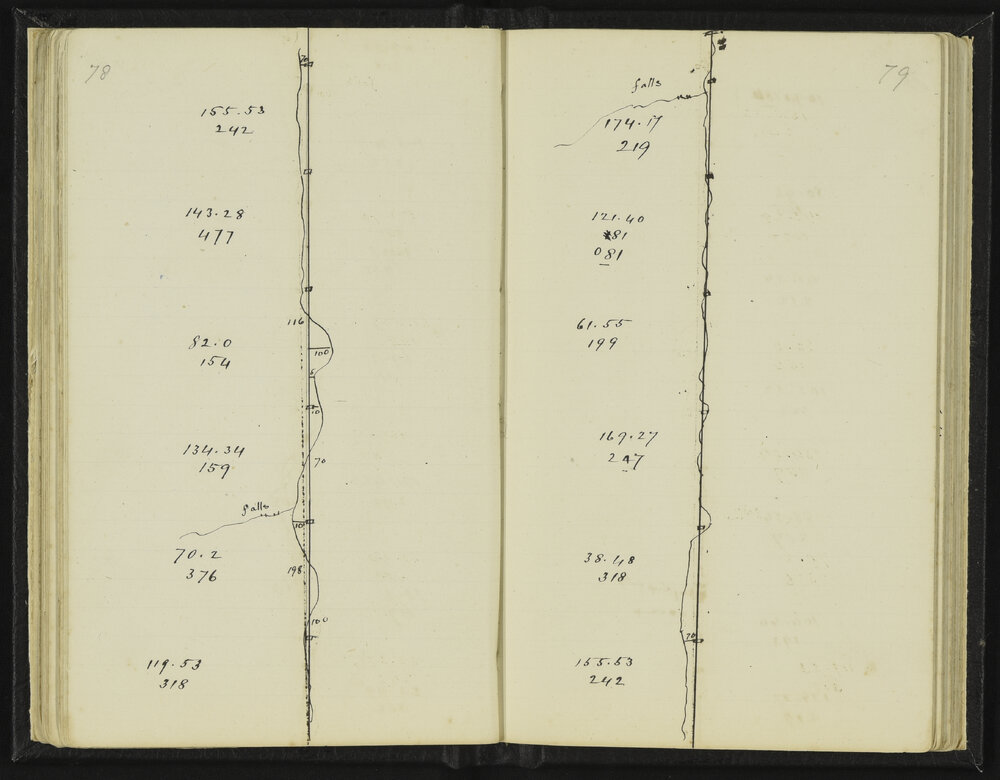 78
70
155.53
242
143.28
477
116
82.0
100
154
5
10
134.34
159
70
falls
10
70.2
376
198
100
119.53
318
79
falls
174.17
219
121.40
81
081
61.55
199
169.27
247
38.48
318
70
155.53
242